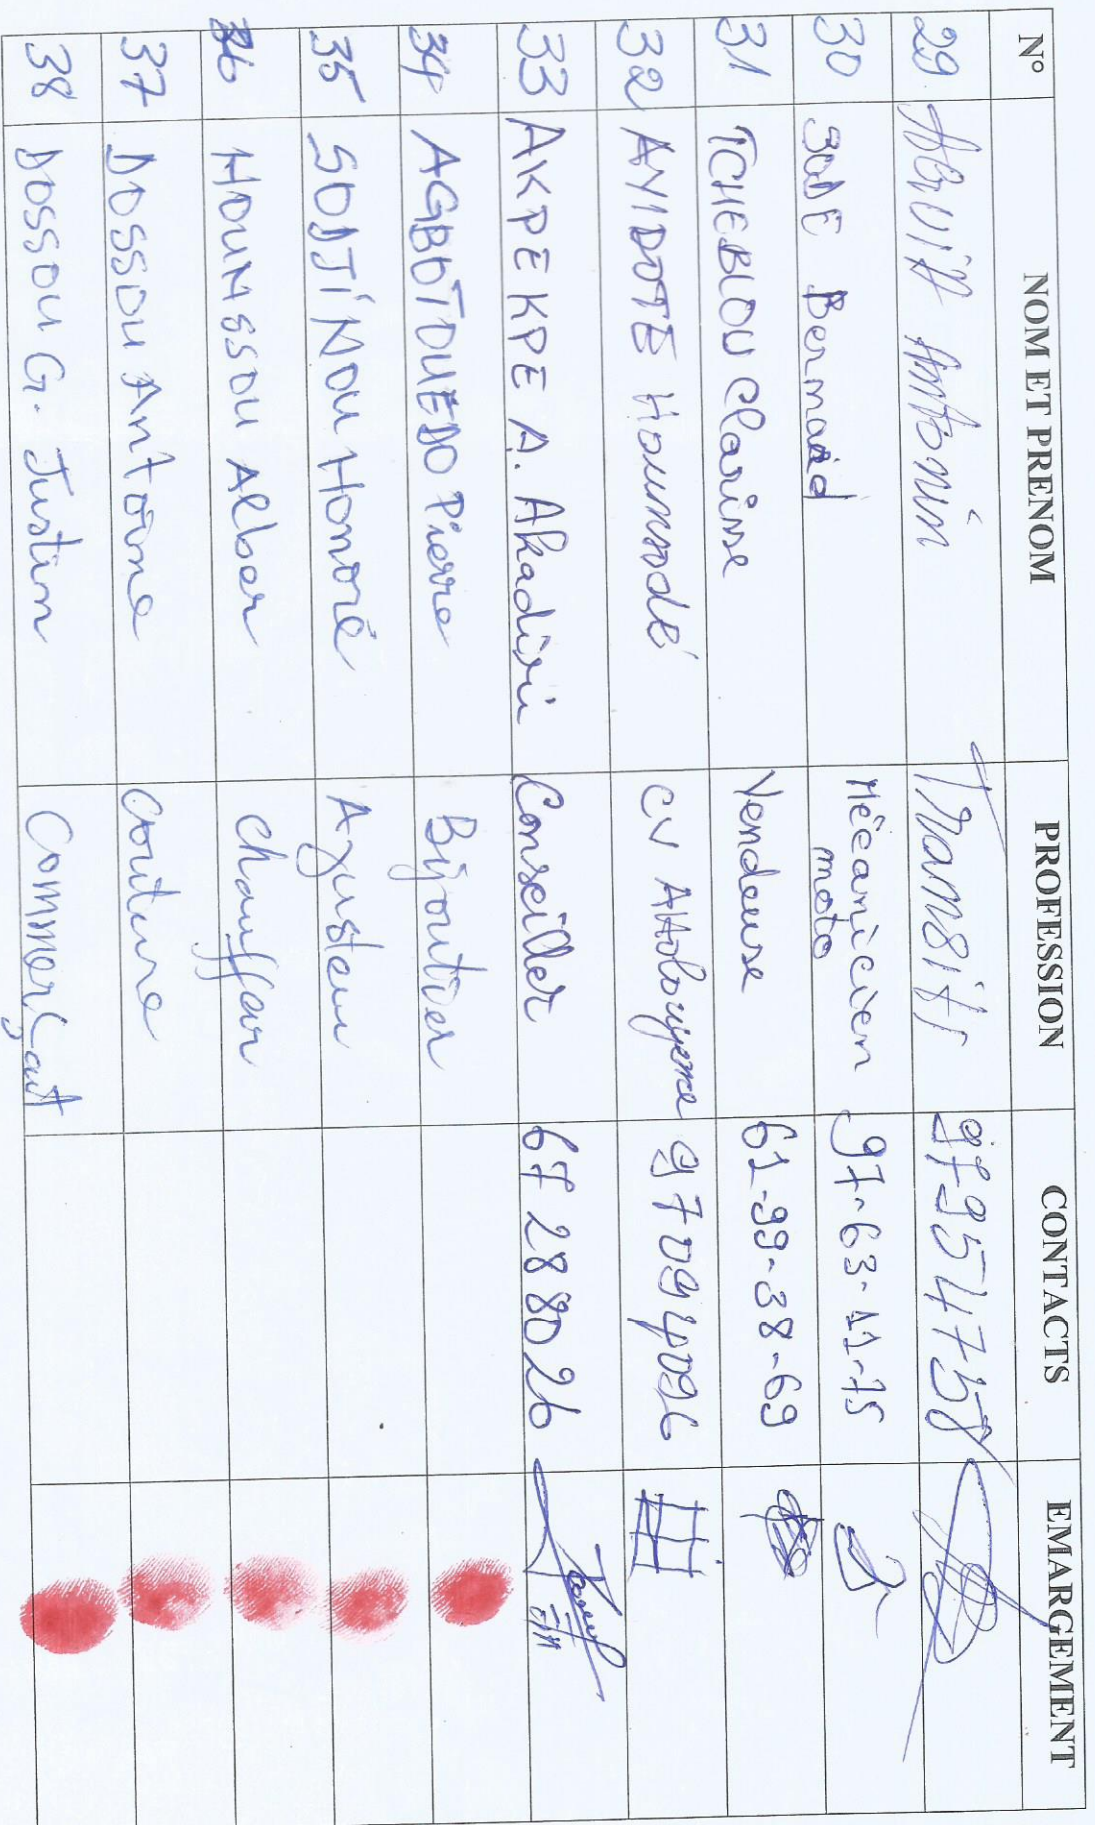 N° NOM ET PRENOM PROFESSION CONTACTS EMARGEMENT
29 Antonin Transit 97954758
30 SODE Bernard Mécanicien moto 97-63-11-75
31 TCHEBLOU Clarisse Vendeuse 61-99-38-69
32 AYIDOTE Hounsodé CV 97094096
33 AKPE KPE A. Akadiri Conseiller 67288026
34 AGBOTOUEDO Pierre Bijoutier
35 SODJINOU Honoré Ajusteu
36 HOUNSSOU Alber Chauffar
37 DOSSOU Antoine Couture
38 DOSSOU G. Justin Commerçant